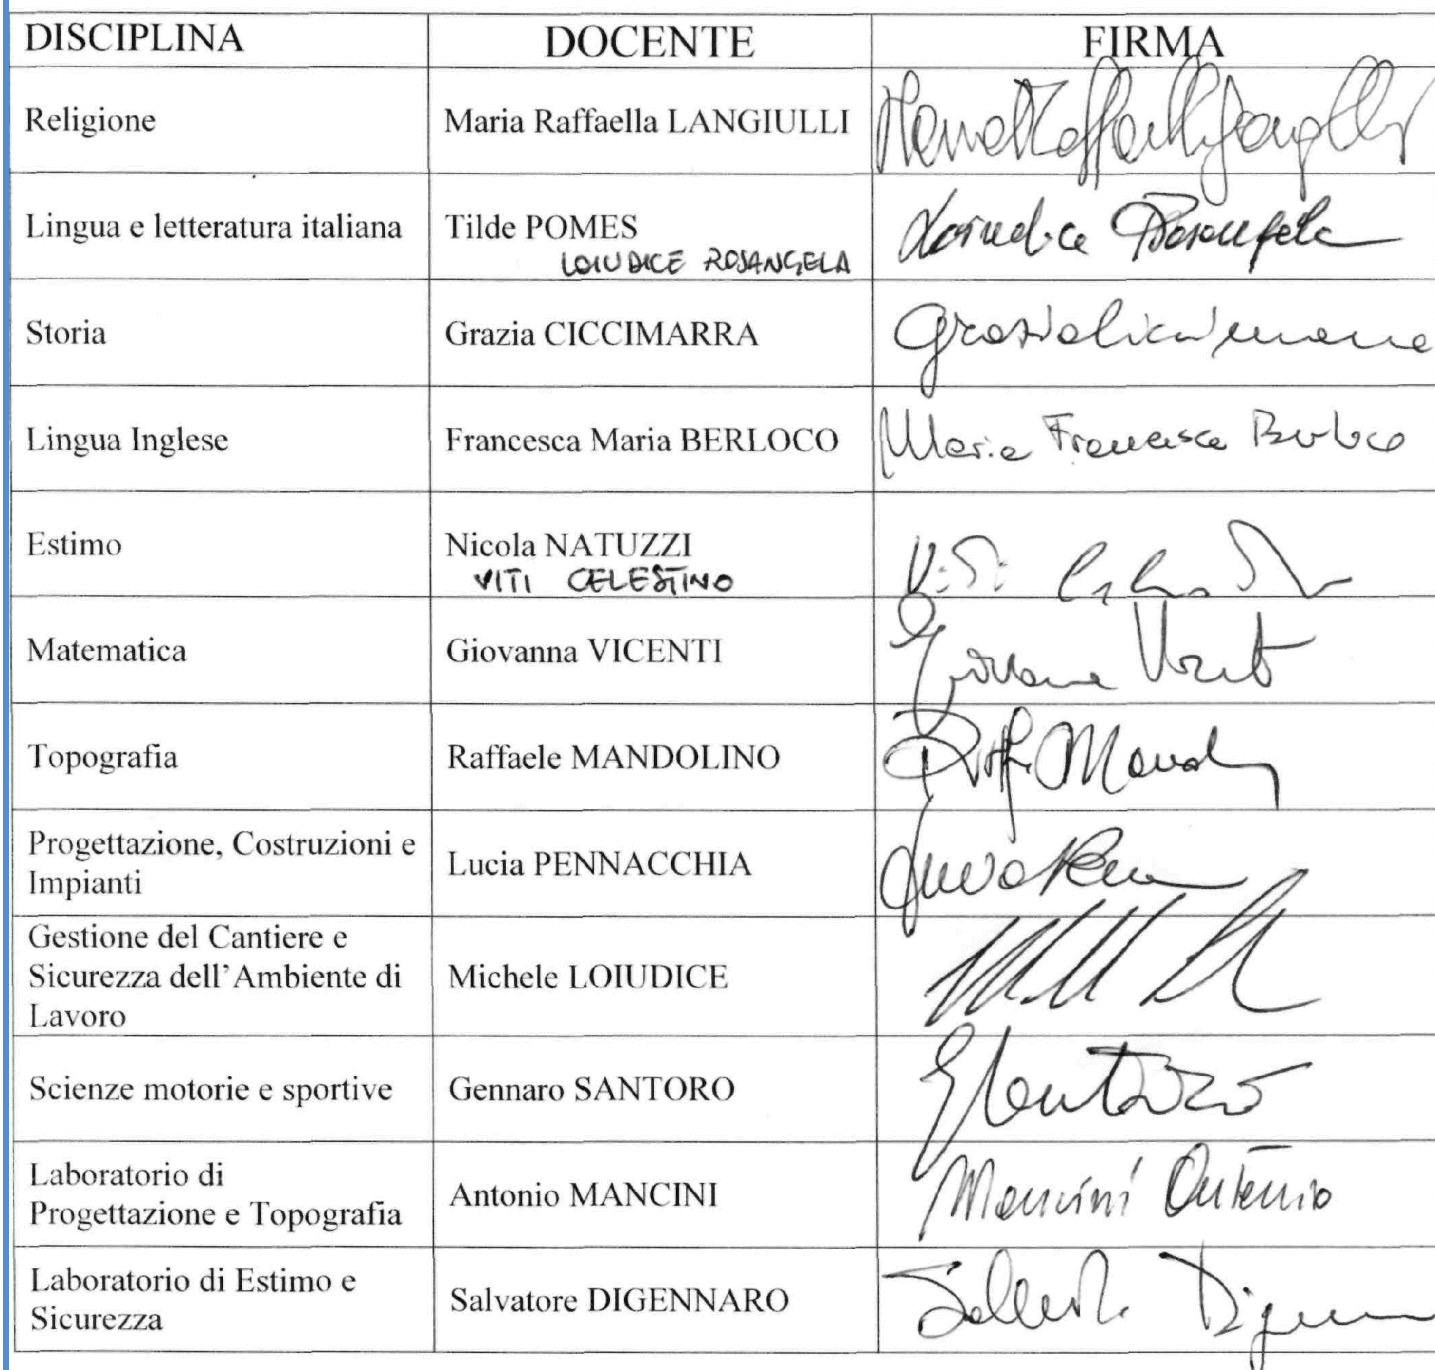 DISCIPLINA DOCENTE FIRMA
Religione Maria Raffaella LANGIULLI Maria Raffaella Langiulli
Lingua e letteratura italiana Tilde POMES
LOIUDICE ROSANGELA Loiudice Rosangela
Storia Grazia CICCIMARRA Grazia Ciccimarra
Lingua Inglese Francesca Maria BERLOCO Maria Francesca Berloco
Estimo Nicola NATUZZI
VITI CELESTINO Viti Celestino
Matematica Giovanna VICENTI Giovanna
Topografia Raffaele MANDOLINO
Progettazione, Costruzioni e
Impianti Lucia PENNACCHIA
Gestione del Cantiere e
Sicurezza dell'Ambiente di
Lavoro Michele LOIUDICE
Scienze motorie e sportive Gennaro SANTORO
Laboratorio di
Progettazione e Topografia Antonio MANCINI Mancini Antonio
Laboratorio di Estimo e
Sicurezza Salvatore DIGENNARO